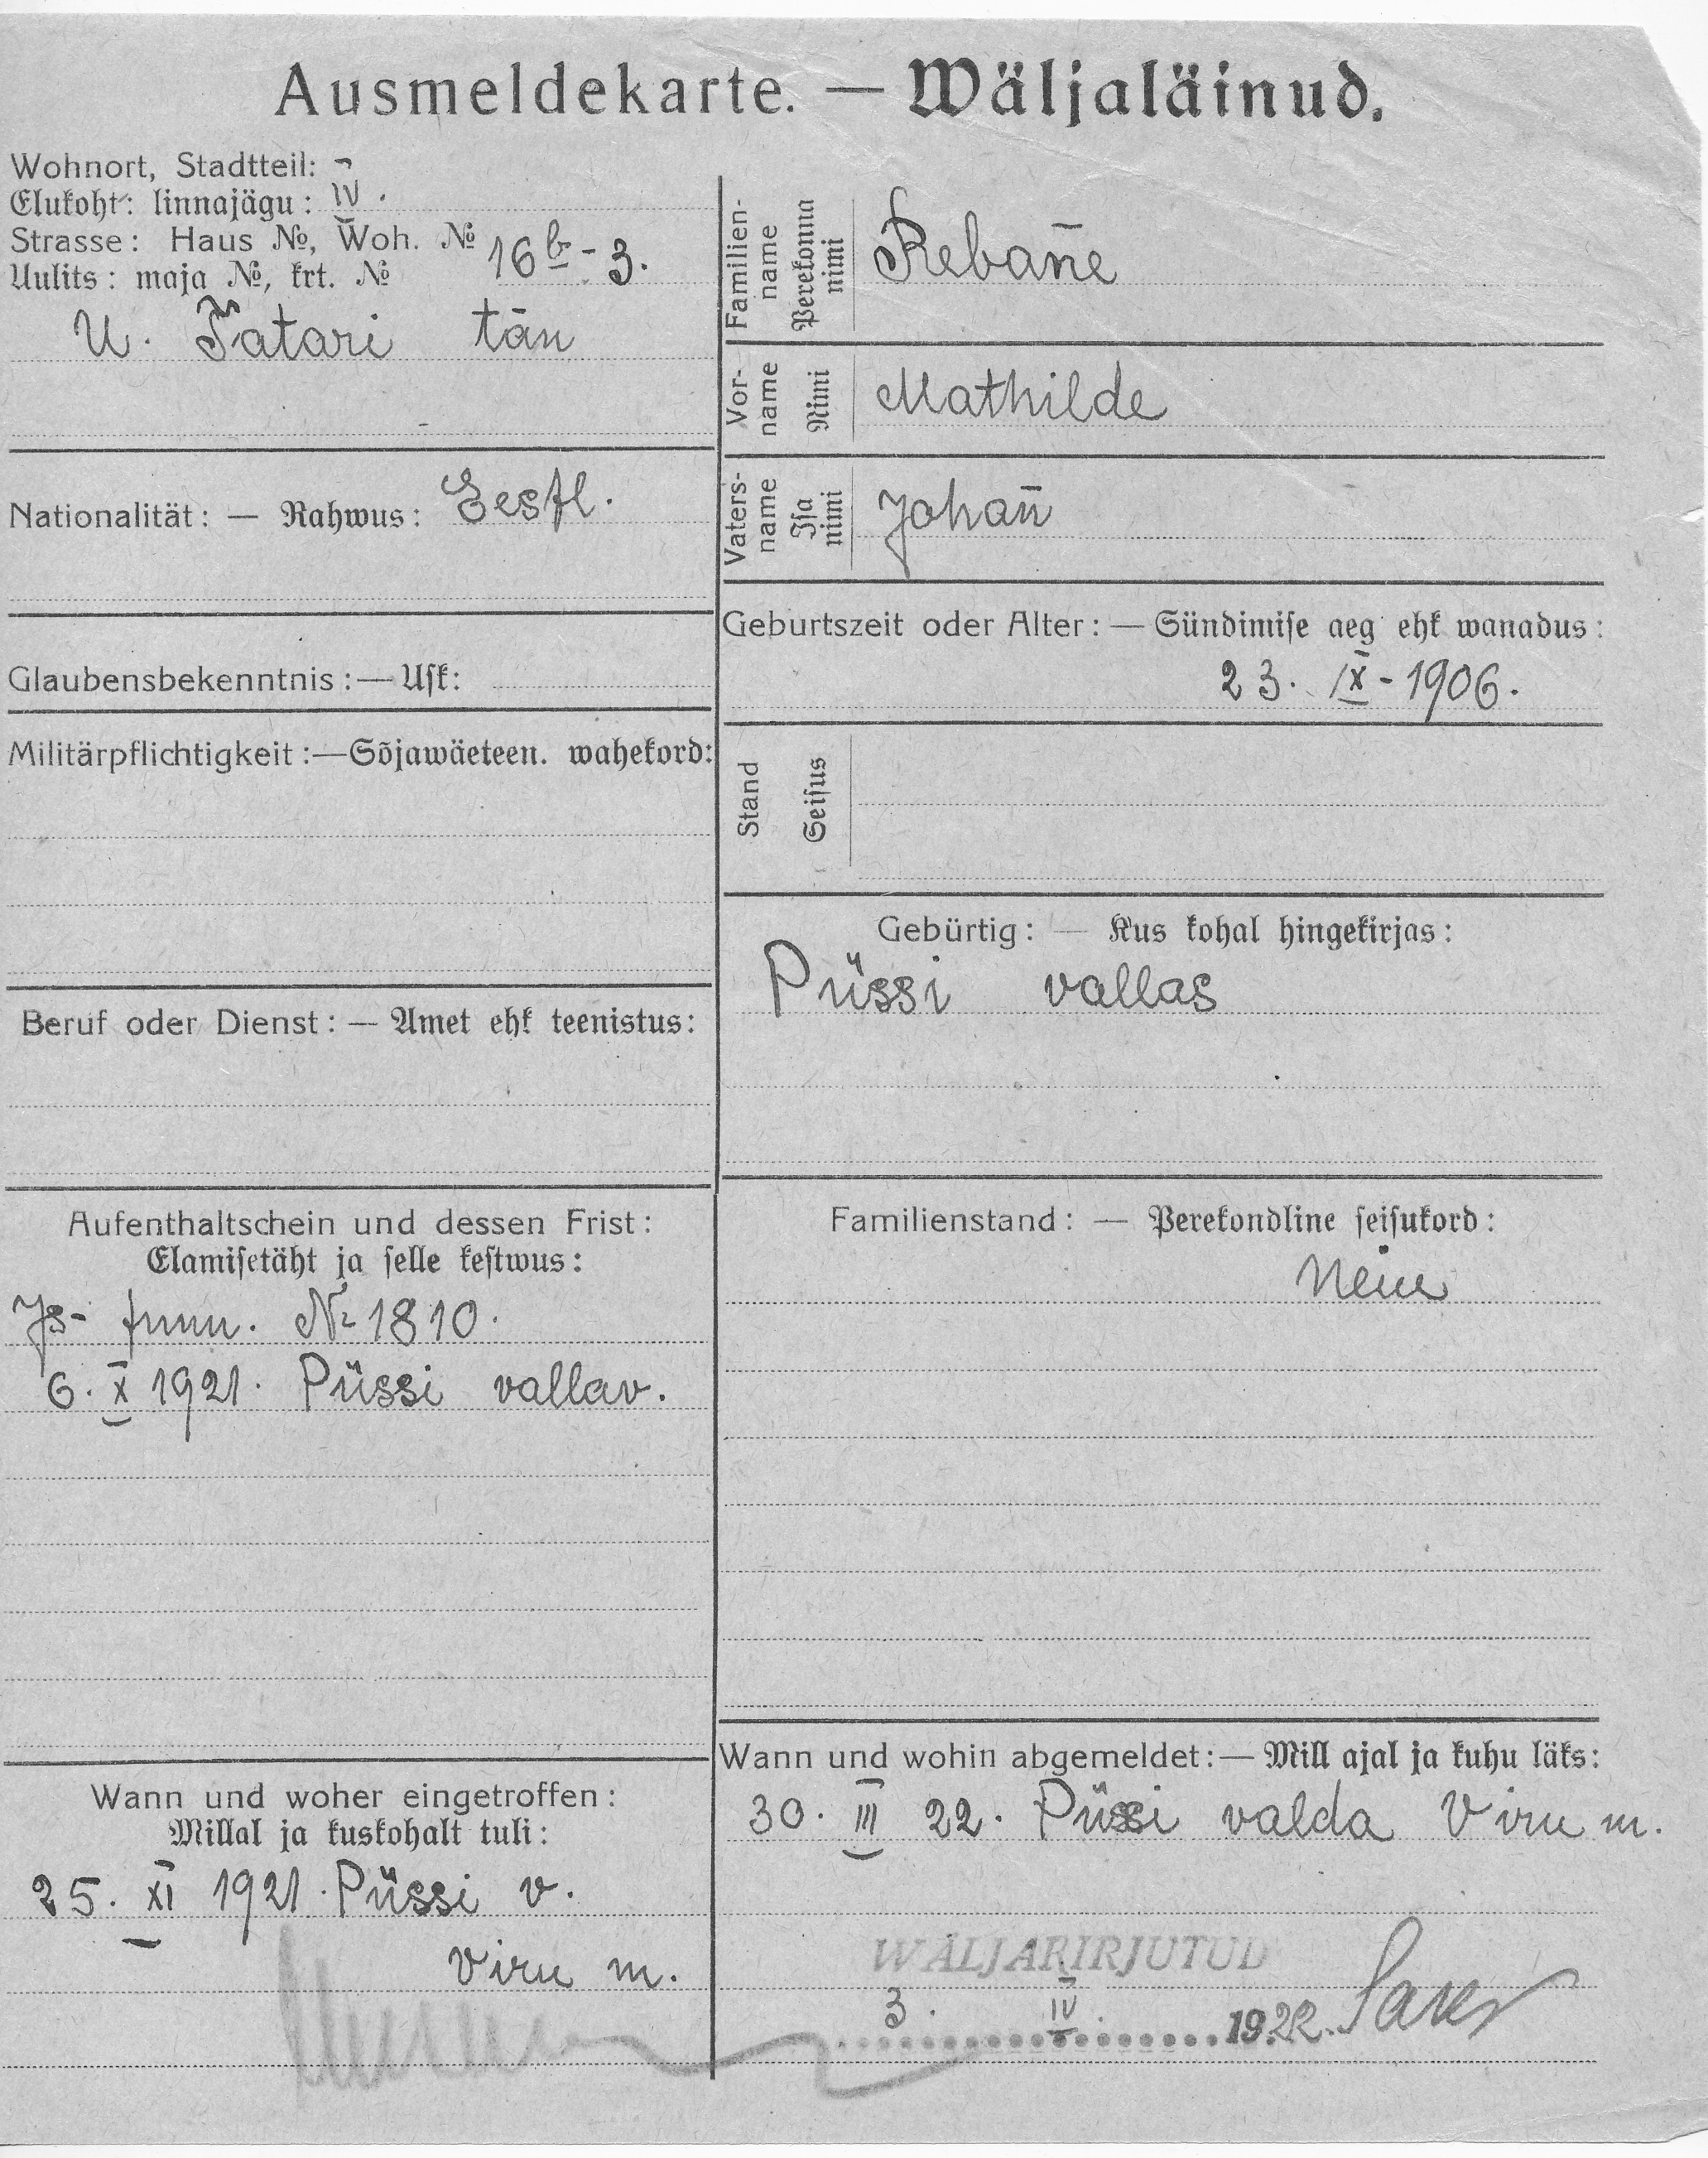 Ausmeldekarte. — Wäljaläinud.
Wohnort, Stadtteil:
Elukoht: linnajägu: IV.
Strasse: Haus №, Woh. №
Uulits: maja №, krt. № 16 b - 3.
U. Tatari tän
Nationalität: — Rahwus: Eestl.
Glaubensbekenntnis: — Usk:
Militärpflichtigkeit: — Sõjawäeteen. wahekord:
Beruf oder Dienst: — Amet ehk teenistus:
Aufenthaltschein und dessen Frist:
Elamisetäht ja selle kestwus:
Js- tunn. № 1810.
6. X 1921. Püssi vallav.
Wann und woher eingetroffen:
Millal ja kuskohalt tuli:
25. XI 1921. Püssi v.
Viru m.
Familien-
name
Perekonna
nimi
Reban̄e
Vor-
name
Nimi
Mathilde
Vaters-
name
Isa
nimi
Johan̄
Geburtszeit oder Alter: — Sündimise aeg ehk wanadus:
23. IX - 1906.
Stand
Seisus
Gebürtig: — Kus kohal hingekirjas:
Püssi vallas
Familienstand: — Perekondline seisukord:
Neiu
Wann und wohin abgemeldet: — Mill ajal ja kuhu läks:
30. III 22. Püssi valda Viru m.
WÄLJAKIRJUTUD
3. IV. 1922.